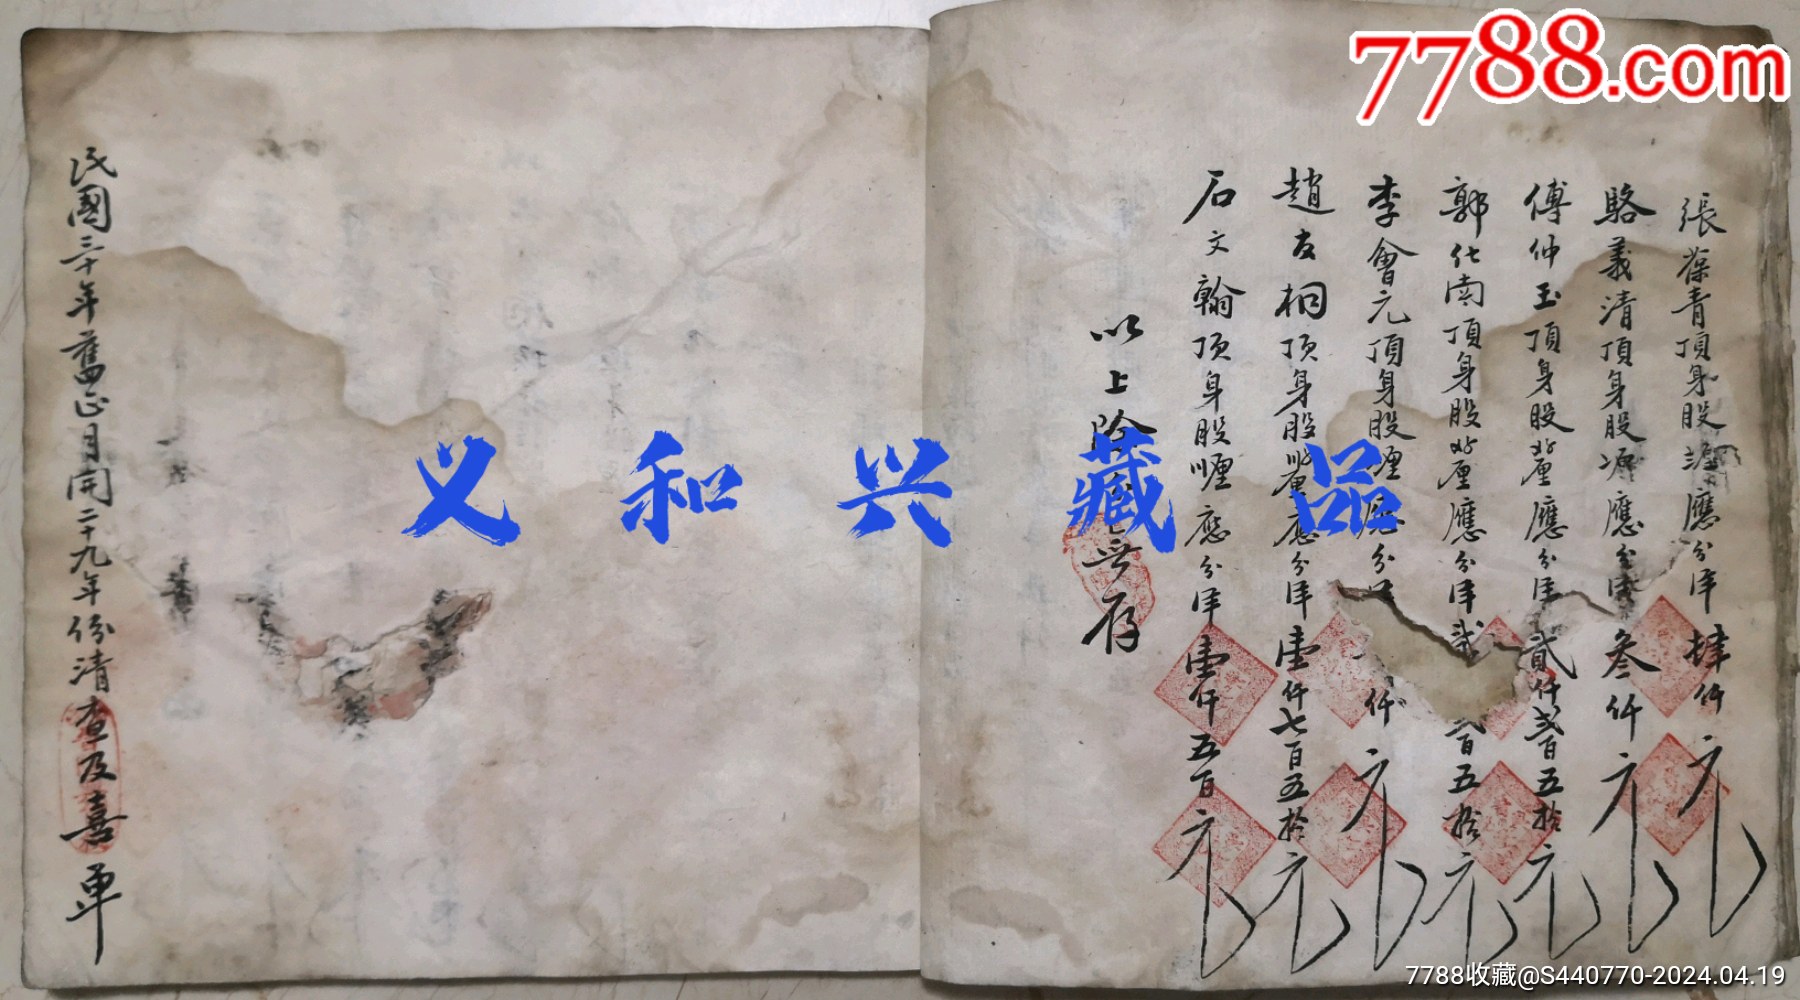 7788.com
張葆青頂身股 應分洋肆仟元
駱義清頂身股 應分洋叁仟元
傅仲玉頂身股 厘應分洋貳仟貳百五拾元
郭化南頂身股 厘應分洋貳 貳百五拾元
李會元頂身股 厘應分 仟元
趙友桐頂身股 厘應分洋壹仟七百五拾元
石文翰頂身股 厘應分洋壹仟五百元
以上除 無存
民國三十年舊正月開二十九年份清查及喜單
义和兴藏品
7788收藏@S440770-2024.04.19